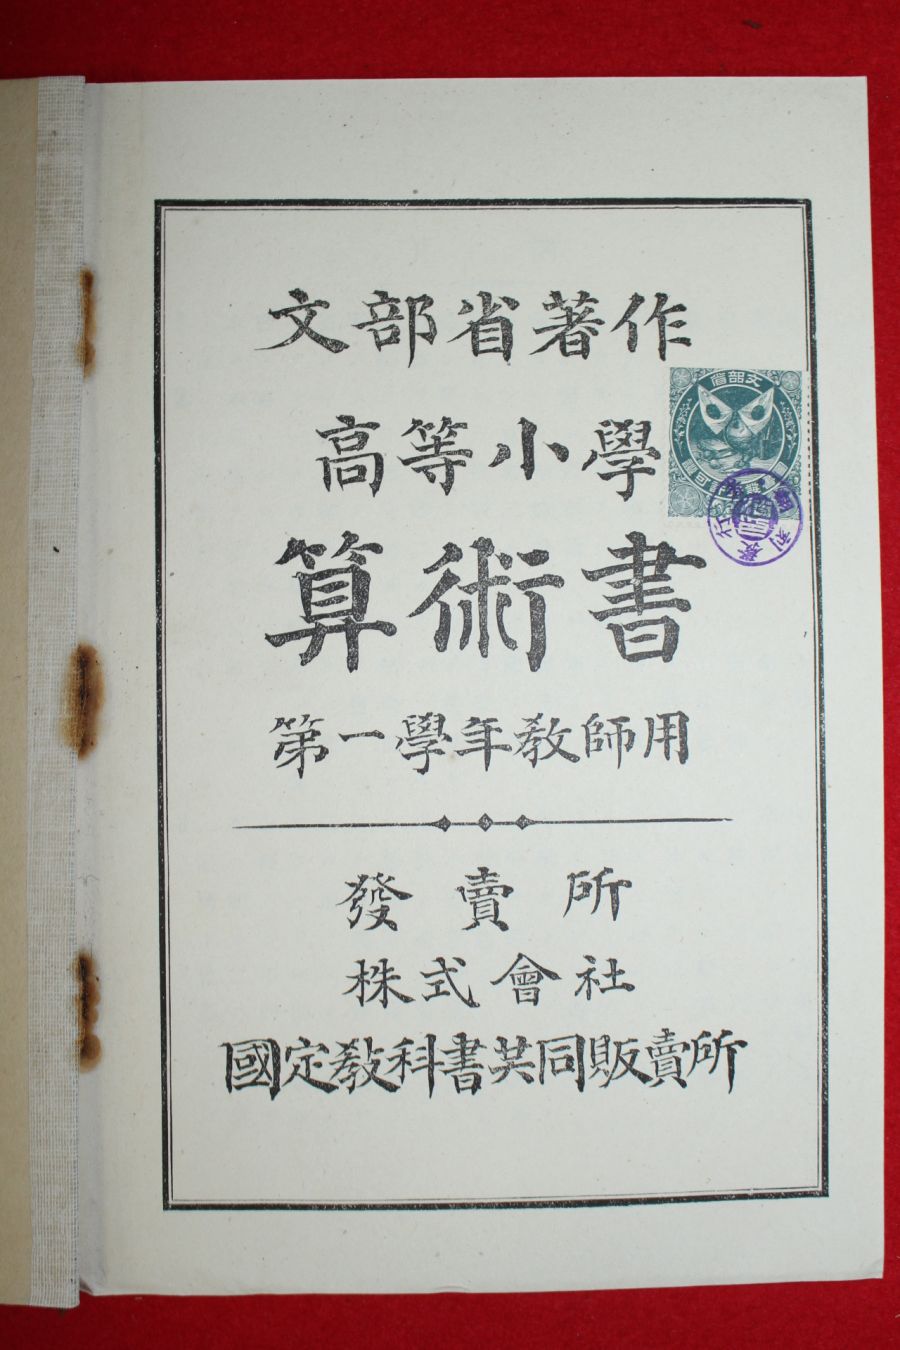 文部省著作
高等小學
算術書
第一學年教師用
發賣所
株式會社
國定教科書共同販賣所
文部省